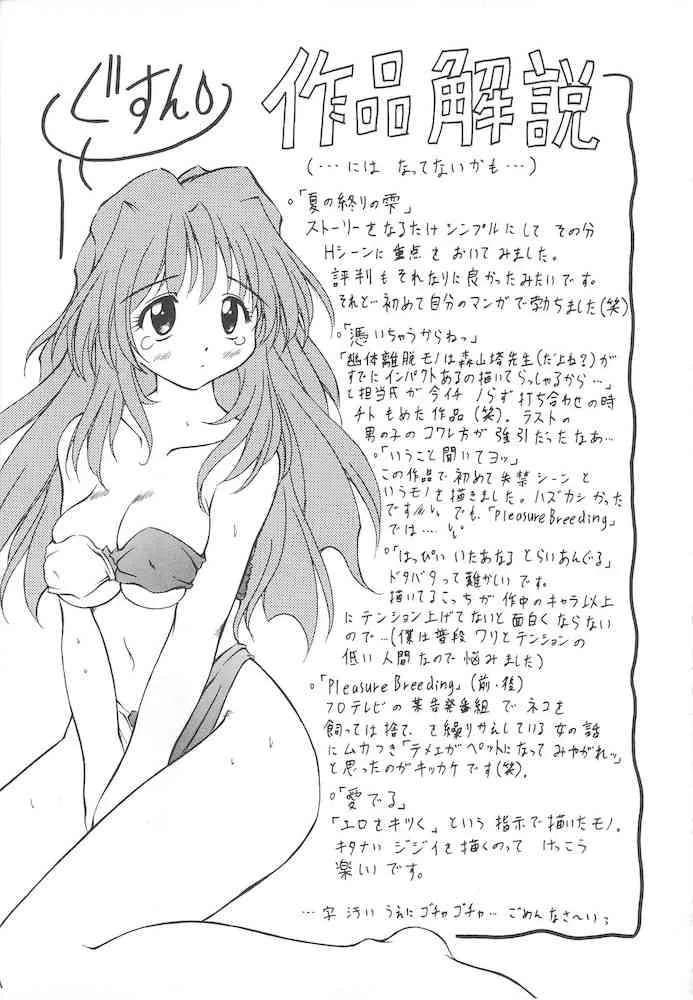 ぐすん
作品解説
(…には なってないかも…)
「夏の終りの雫」
ストーリーをなるたけ シンプルにして その分
Hシーンに重点をおいてみました。
評判もそれなりに良かったみたいです。
それと…初めて自分のマンガで勃ちました(笑)
「憑いちゃうからねっ」
「幽体離脱モノは森山塔先生(だよね?)が
すでにインパクトあるの描いてらっしゃるから…」
と担当氏が今イチ ノらず打ち合わせの時
チトもめた作品(笑)。ラストの
男の子のコワレ方が強引だったなあ…
「いうこと聞いてヨッ」
この作品で初めて失禁シーンと
いうモノを描きました。ハズカシかった
です でも、「Pleasure Breeding」
では……
「はっぴい いたあなる とらいあんぐる」
ドタバタって難かしいです。
描いてるこっちが作中のキャラ以上
にテンション上げてないと面白くならない
ので…(僕は普段ワリとテンションの
低い人間なので悩みました)
「Pleasure Breeding」(前・後)
フロテレビの某告発番組でネコを
飼っては捨て、を繰りかえしている女の話
にムカつき「テメェがペットになってみやがれッ」
と思ったのがキッカケです(笑)。
「愛でる」
「エロをキツく」という指示で描いたモノ。
キタナいジジイを描くのって けっこう
楽しいです。
…字汚い うえにゴチャゴチャ… ごめんなさ~いっ